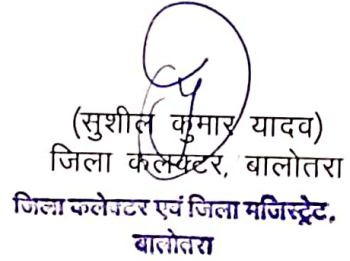 (सुशील कुमार यादव)
जिला कलेक्टर, बालोतरा
जिला कलेक्टर एवं जिला मजिस्ट्रेट,
बालोतरा